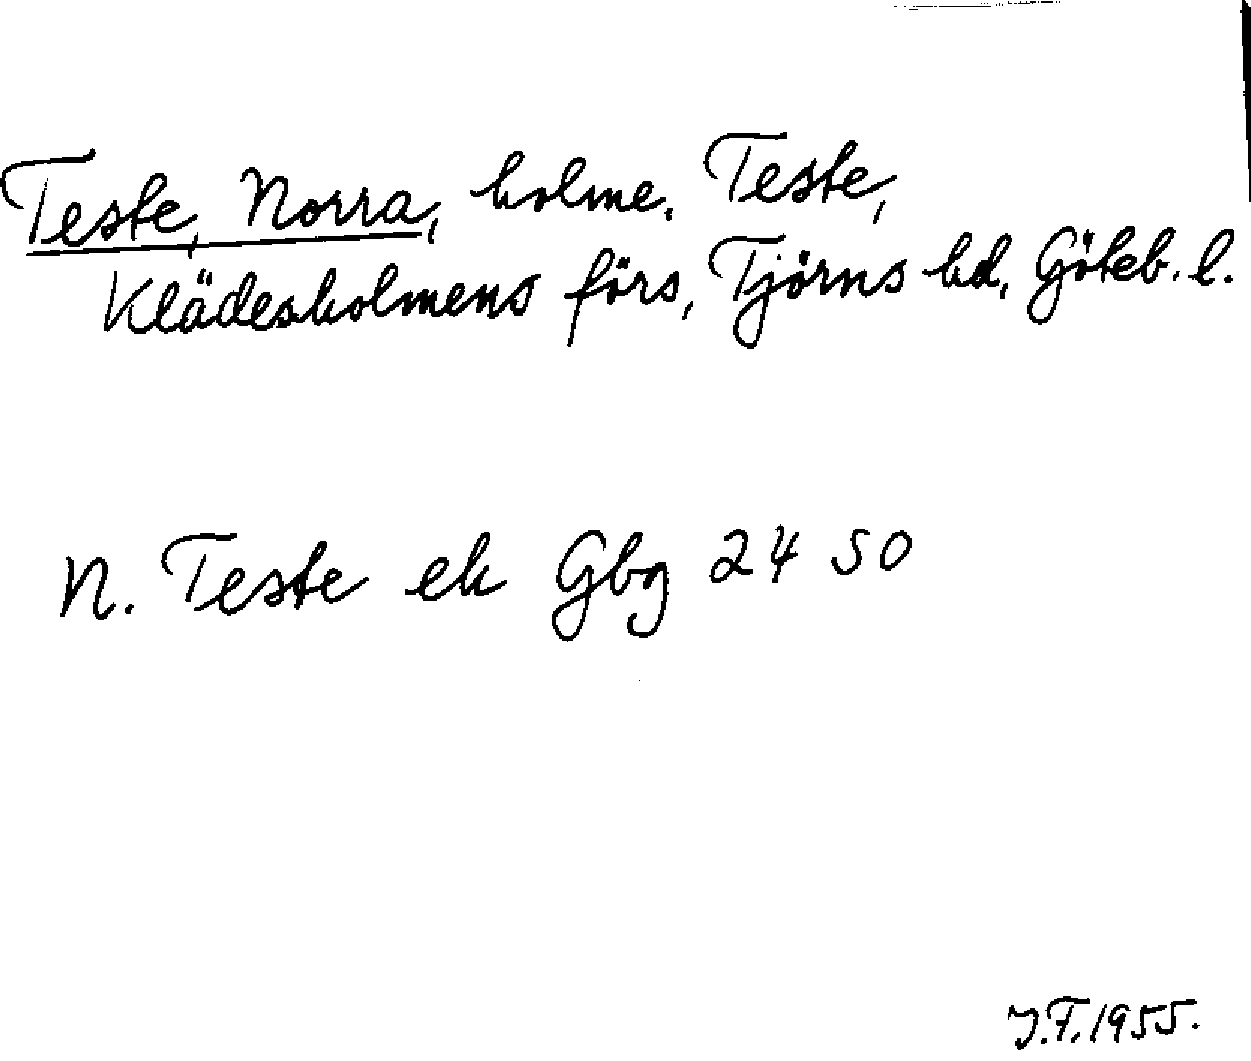 Teste, Norra, holme. Teste,
Klädesholmens förs, Tjörns hd, Göteb. l.
N. Teste ek Gbg 24 50
J.F. 1955.